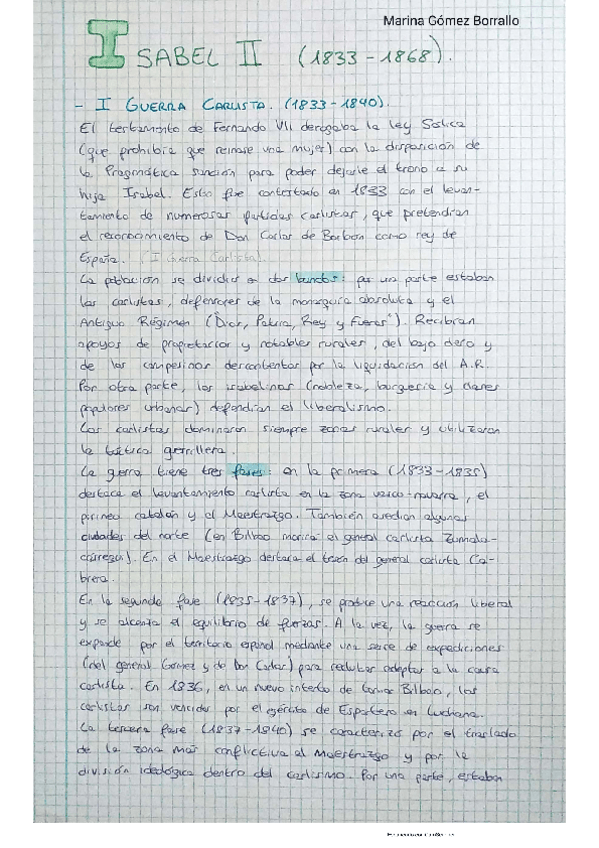 Marina Gómez Borrallo
ISABEL II (1833-1868).
- I GUERRA CARLISTA. (1833-1840).
El testamento de Fernando VII derogaba la ley Sálica
(que prohibía que reinase una mujer) con la disposición de
la Pragmática Sanción para poder dejarle el trono a su
hija Isabel. Esto fue contestado en 1833 con el levan-
tamiento de numerosas partidas carlistas, que pretendían
el reconocimiento de Don Carlos de Borbón como rey de
España. (I Guerra Carlista).
La población se dividió en dos bandos: por una parte estaban
los carlistas, defensores de la monarquía absoluta y el
Antiguo Régimen ("Dios, Patria, Rey y Fueros"). Recibían
apoyos de propietarios y notables rurales, del bajo clero y
de los campesinos descontentos por la liquidación del A.R.
Por otra parte, los isabelinos (nobleza, burguesía y clases
populares urbanas) defendían el liberalismo.
Los carlistas dominaron siempre zonas rurales y utilizaron
la táctica guerrillera.
La gerra tiene tres fases: en la primera (1833-1835)
destaca el levantamiento carlista en la zona vasco-navarra, el
pirineo catalán y el Maestrazgo. También asedian algunas
ciudades del norte (en Bilbao morirá el general carlista Zumala-
cárregui). En el Maestrazgo destaca el tesón del general carlista Ca-
brera.
En la segunda fase (1835-1837), se produce una reacción liberal
y se alcanza el equilibrio de fuerzas. A la vez, la guerra se
expande por el territorio español mediante una serie de expediciones
(del general Gómez y de Don Carlos) para reclutar adeptos a la causa
carlista. En 1836, en un nuevo intento de tomar Bilbao, los
carlistas son vencidos por el ejército de Espartero en Luchana.
La tercera fase (1837-1840) se caracteriza por el traslado
de la zona más conflictiva al Maestrazgo y por la
división ideológica dentro del carlismo. Por una parte, estaban